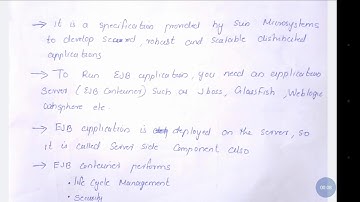 → It is a specification provided by Sun Microsystems
to develop secured, robust and scalable distributed
applications
→ To Run EJB application, you need an application
Server (EJB Container) such as Jboss, Glassfish, Weblogic
Websphere etc.
→ EJB application is deployed on the server, so
it is called Server side Component also
→ EJB container performs
• life Cycle Management
• Security